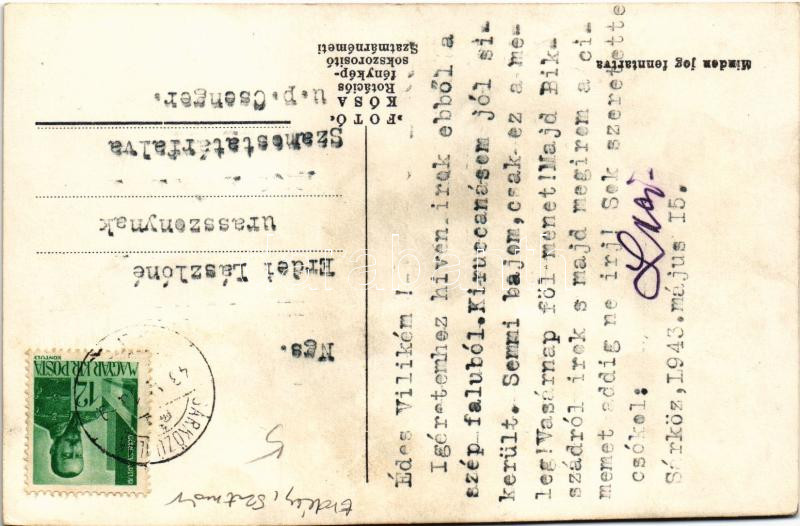 Édes Vilikém !-
Igéretemhez hiven irok ebből a
szép faluból.Kiruccanásom jól si-
került. Semmi bajom,csak ez a me-
leg!Vasárnap föl menet!Majd Bik-
szádról irok s majd megirom a ci-
memet addig ne irj! Sok szeretette
csókol:
Sárköz,1943.május 15.
Minden jog fenntartva
„FOTÓ"
KÓSA
Rotációs
fénykép-
sokszorosító
Szatmárnémeti
Ngs.
Erdei Lászlóné
urasszonynak
Szamostatárfalva
u.p.Csenger.
MAGYAR KIR. POSTA
12
SÁRKÖZ
Erdély, Szatmár